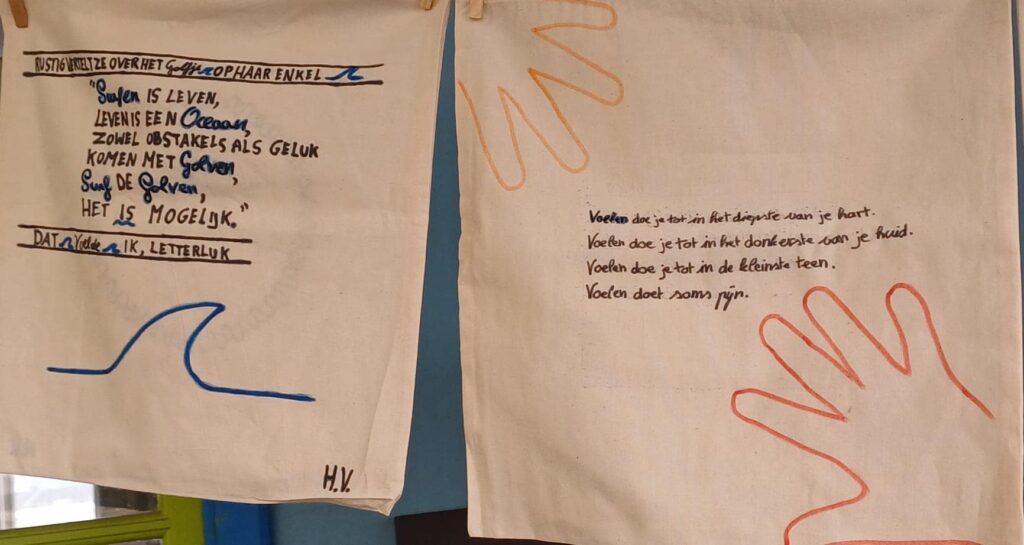 RUSTIG VERTELT ZE OVER HET Golfje OP HAAR ENKEL
"Surfen IS LEVEN,
LEVEN IS EEN Oceaan,
ZOWEL OBSTAKELS ALS GELUK
KOMEN MET Golven,
Surf DE Golven,
HET IS MOGELIJK."
DAT Voelde IK, LETTERLIJK
H.V.
Voelen doe je tot in het diepste van je hart.
Voelen doe je tot in het donkerste van je huid.
Voelen doe je tot in de kleinste teen.
Voelen doet soms pijn.